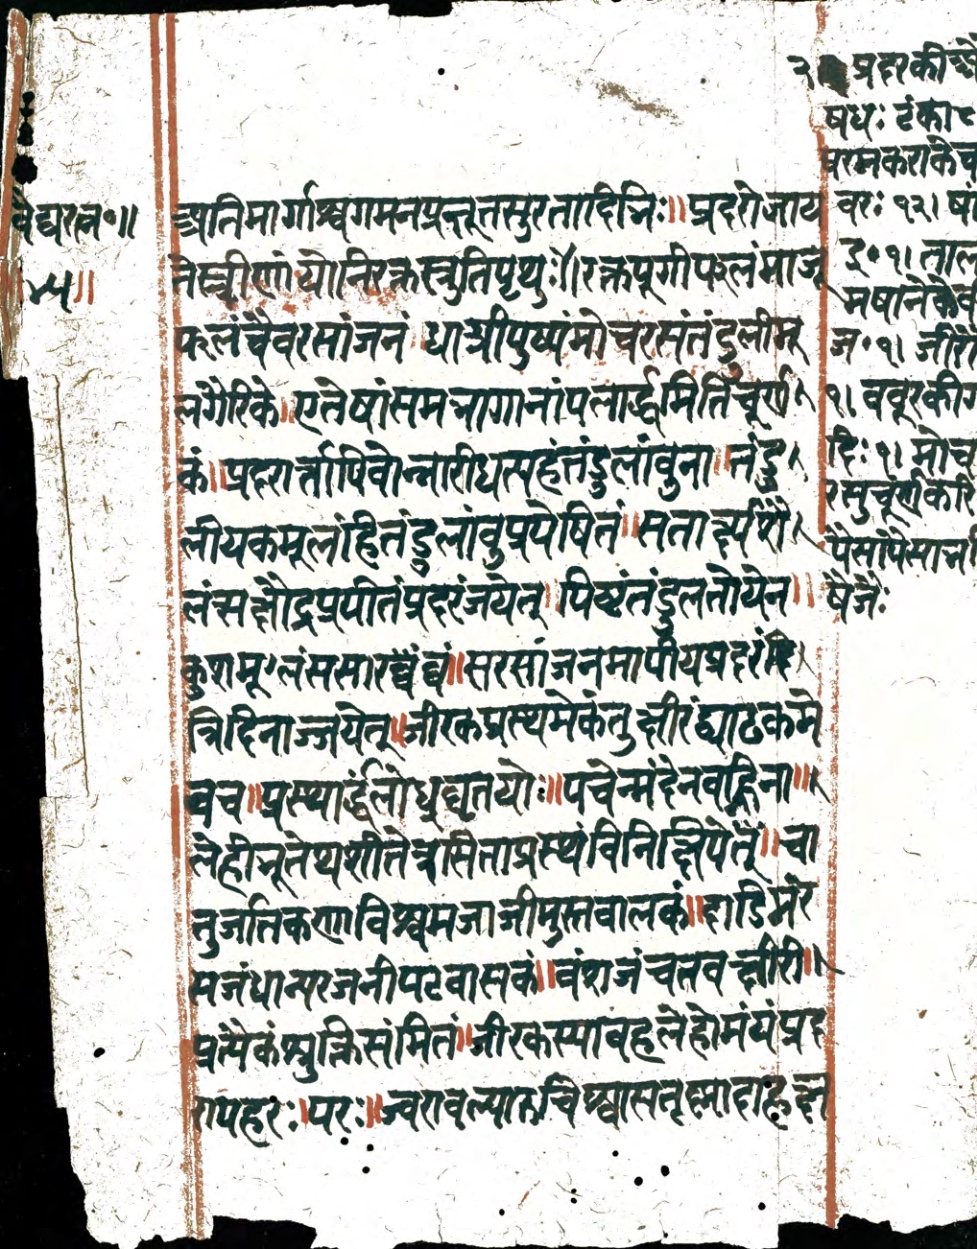 वैद्यरत्न॰॥
४५॥
अतिमार्गाश्वगमनप्रभूतसुरतादिभिः॥ प्रदरोजाय
तेस्त्रीणांयोनिरक्तस्रुतिपृथुः॥रक्तपूगीफलंमाजू
फलंचैवरसांजनं धात्रीपुष्पंमोचरसंतंदुलीमू
लगैरिके॥एतेषांसमभागानांपलार्द्धमितिचूर्ण
कं॥प्रदरार्त्तापिवेन्नारीधत्सहंतंडुलांवुना॥तंडु
लीयकमूलंहितंडुलांवुप्रपेषितं॥सतार्क्ष्यशै
लंसक्षौद्रप्रपीतंप्रदरंजयेत्॥पिष्टंतंडुलतोयेन॥
कुशमूलंससारघं॥सरसांजनमापीयप्रदरं
त्रिदिनाज्जयेत्॥जीरकप्रस्थमेकंतुक्षीरंद्याढकमे
वच॥प्रस्थार्द्धंलोध्रघृतयोः॥पचेन्मंदेनवह्निना॥
लेहीभूतेथशीतेत्रसिताप्रस्थंविनिक्षिपेत्॥चा
तुर्जातकणाविश्वमजाजीमुस्तवालकं॥दाडिमंर
सजंधान्यरजनीपटवासकं॥वंशजंचतवक्षीरी॥
प्रत्येकंशुक्तिसंमितं॥जीरकस्यावहलेहोमंयंप्रद
रापहरः॥परः॥ज्वरावल्यारुचिश्वासतृष्णादाहक्ष
२ प्रदरकीऔ
षधः टंका
परमकराकेच
वरः १२। ष
इ॰१। ताल
मषानेकेव
ज॰१। जीरो
१। ववूरकी
दिः१। मोच
रसुचूर्णकरि
पैसांपैसाभ
षैजैः